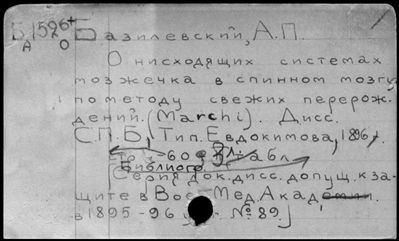 Б 1526+ Базилевский, А.П.
А О
О нисходящих системах
мозжечка в спинном мозгу
по методу свежих перерож-
дений. (Marchi). Дисс.
С.П.Б., Тип. Евдокимова, 1896 г.
60 табл.
Библиогр.
(Серия док. дисс. допущ. к за-
щите в Вое Мед. Академии.
в 1895-96 № 89)